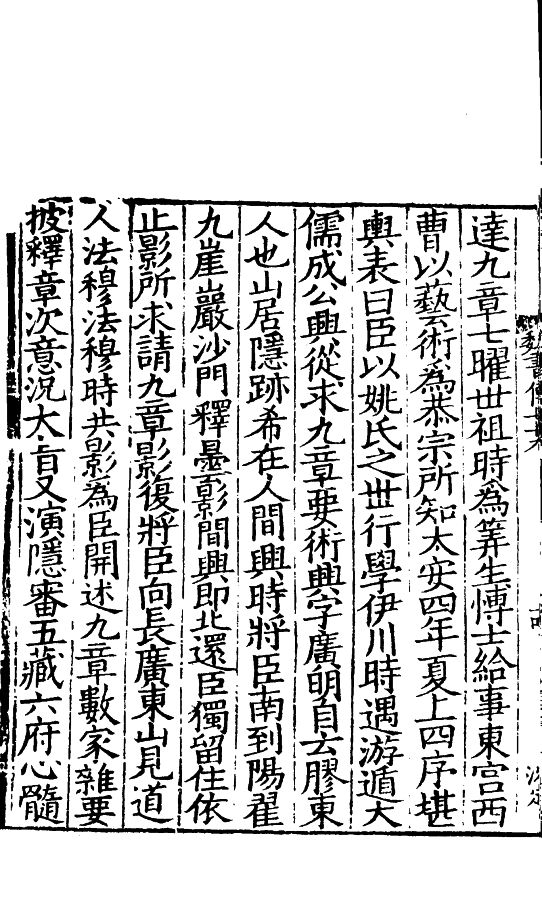 達九章七曜世祖時為筭生愽士給事東宮西
曹以藝術為恭宗所知太安四年夏上四序堪
輿表曰臣以姚氏之世行學伊川時遇游遁大
儒成公興從求九章要術興字廣明自云膠東
人也山居隱跡希在人間興時將臣南到陽翟
九崖巖沙門釋曇影間興即北還臣獨留住依
止影所求請九章影復將臣向長廣東山見道
人法穆法穆時共影為臣開述九章數家雜要
披釋章次意況大旨又演隱審五藏六府心髓